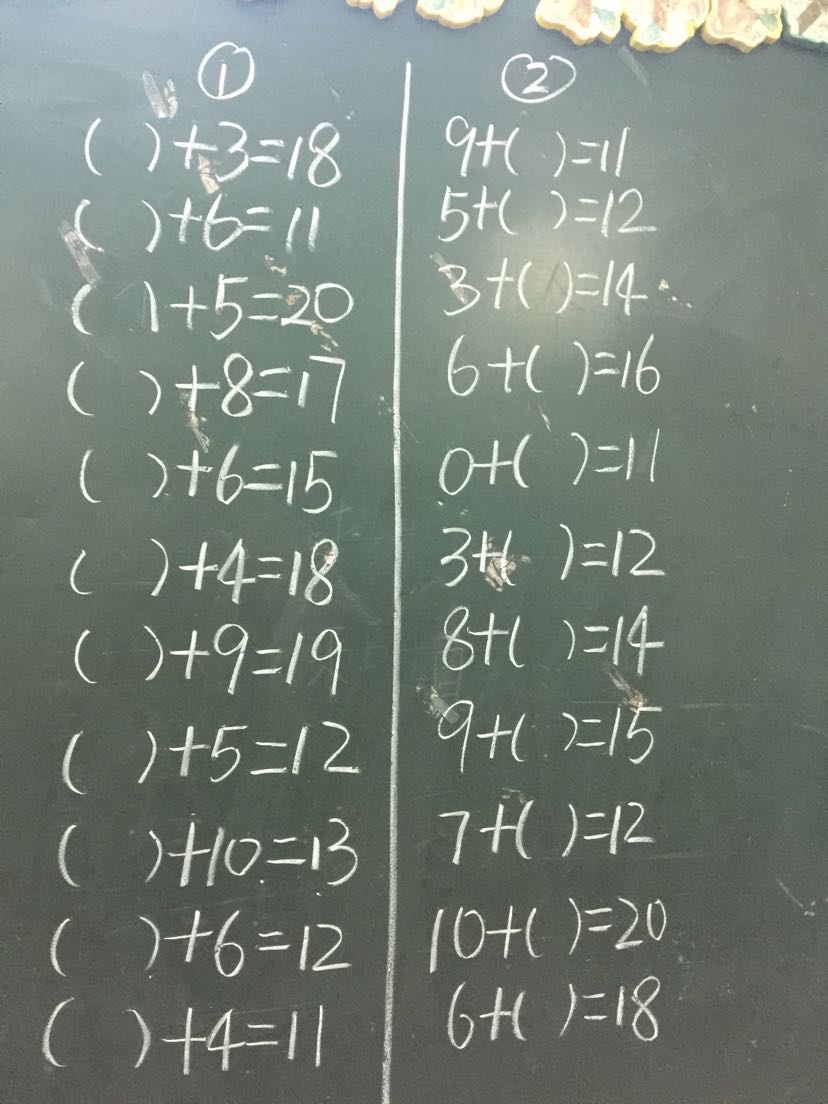 ①
( )+3=18
( )+6=11
( )+5=20
( )+8=17
( )+6=15
( )+4=18
( )+9=19
( )+5=12
( )+10=13
( )+6=12
( )+4=11
②
9+( )=11
5+( )=12
3+( )=14
6+( )=16
0+( )=11
3+( )=12
8+( )=14
9+( )=15
7+( )=12
10+( )=20
6+( )=18